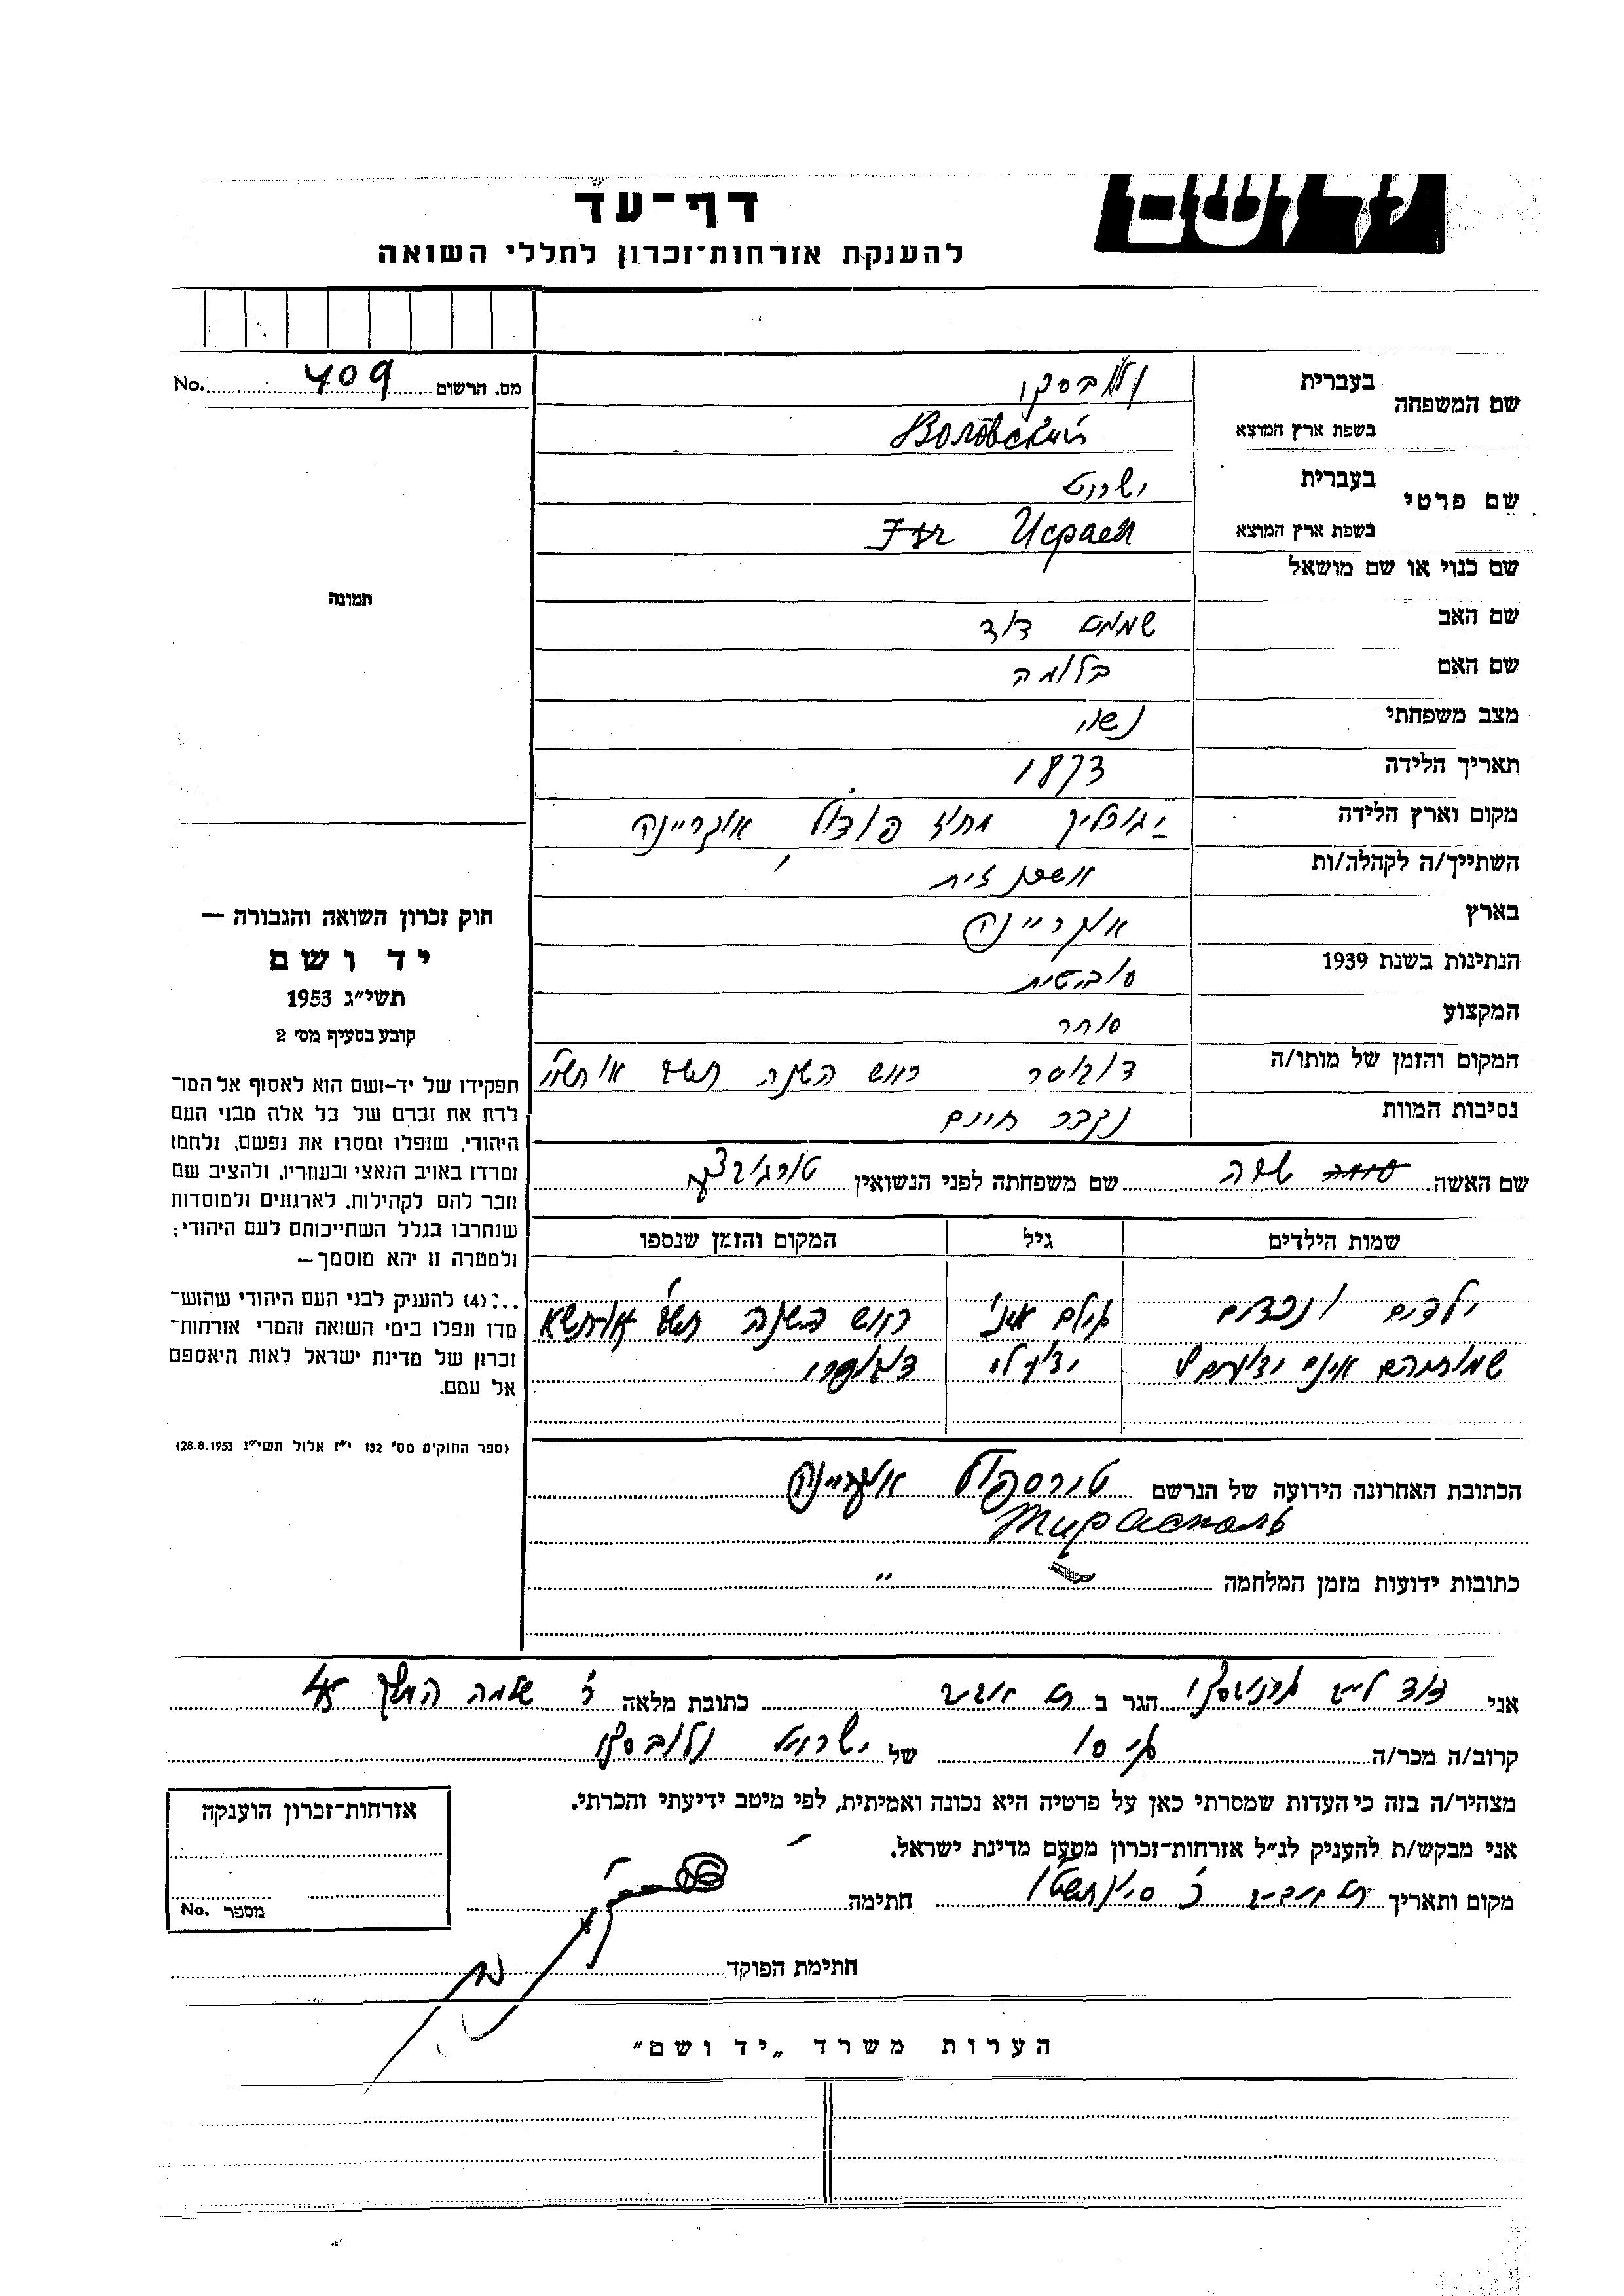 יד ושם
דף־עד
להענקת אזרחות־זכרון לחללי השואה
מס. הרשום 409 No.
שם המשפחה
בעברית
בשפת ארץ המוצא Воловский
שם פרטי
בעברית ישראל
בשפת ארץ המוצא Исраел
שם כנוי או שם מושאל
שם האב שמואל דוד
שם האם בלומה
מצב משפחתי נשוי
תאריך הלידה 1873
מקום וארץ הלידה מחוז פודול אוקריינה
השתייך/ה לקהלה/ות
בארץ אוקריינה
הנתינות בשנת 1939 סובייטית
המקצוע סוחר
המקום והזמן של מותו/ה ראש השנה
נסיבות המוות נקבר חיים
שם האשה שרה שם משפחתה לפני הנשואין
שמות הילדים גיל המקום והזמן שנספו
ילדים ונכדים גילם אינו ראש השנה
שמותיהם אינם ידועים לי ידוע לי
הכתובת האחרונה הידועה של הנרשם טירספול אוקריינה
Тирасполь
כתובות ידועות מזמן המלחמה "
תמונה
חוק זכרון השואה והגבורה —
יד ושם
תשי"ג 1953
קובע בסעיף מס' 2
תפקידו של יד-ושם הוא לאסוף אל המו־
לדת את זכרם של כל אלה מבני העם
היהודי, שנפלו ומסרו את נפשם, נלחמו
ומרדו באויב הנאצי ובעוזריו, ולהציב שם
וזכר להם לקהילות, לארגונים ולמוסדות
שנחרבו בגלל השתייכותם לעם היהודי;
ולמטרה זו יהא מוסמך —
..:(4) להעניק לבני העם היהודי שהוש־
מדו ונפלו בימי השואה והמרי אזרחות־
זכרון של מדינת ישראל לאות היאספם
אל עמם.
(ספר החוקים מס' 132 י"ז אלול תשי"ג 28.8.1953)
אני דוד הגר ב תל אביב כתובת מלאה שלמה המלך
קרוב/ה מכר/ה גיסו של ישראל ולובסקי
מצהיר/ה בזה כי העדות שמסרתי כאן על פרטיה היא נכונה ואמיתית, לפי מיטב ידיעתי והכרתי.
אני מבקש/ת להעניק לנ"ל אזרחות־זכרון מטעם מדינת ישראל.
מקום ותאריך תל אביב חתימה
חתימת הפוקד
אזרחות־זכרון הוענקה
מספר No.
הערות משרד „יד ושם"